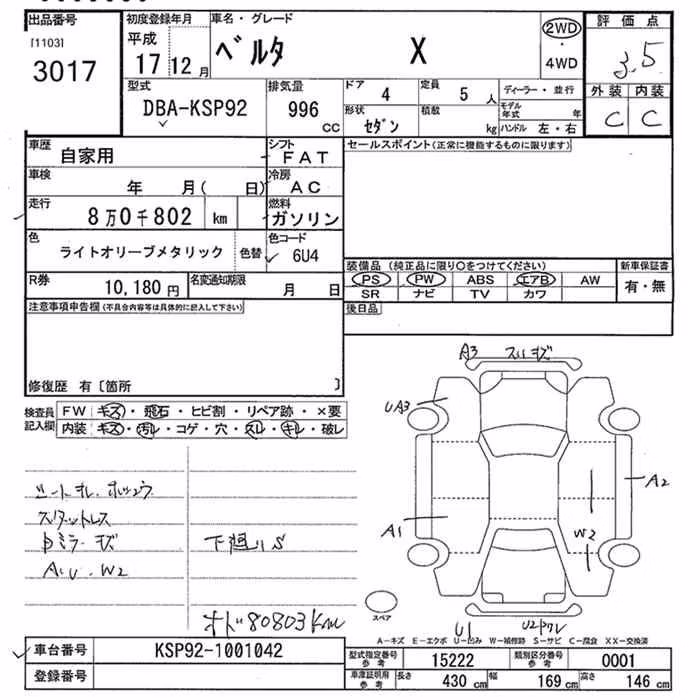 出品番号 初度登録年月 車名・グレード 評価点
[1103] 平成 ベルタ X 2WD ・ 4WD 3.5
3017 17 12月 外装 内装
型式 排気量 ドア 4 定員 5人 ディーラー・並行 C C
DBA-KSP92 996 cc 形状 セダン 積載 kg モデル年式 年 ハンドル 左・右
車歴 自家用 シフト FAT セールスポイント(正常に機能するものに限ります)
車検 年 月( 日) 冷房 AC
走行 8万0千802 km 燃料 ガソリン
色 ライトオリーブメタリック 色替 色コード 6U4
装備品 (純正品に限り○をつけてください) 新車保証書
R券 10,180円 名変通知期限 月 日 PS PW ABS エアB AW 有・無
SR ナビ TV カワ
注意事項申告欄(不具合内容等は具体的に記入して下さい) 後日品
修復歴 有〔箇所 〕
検査員記入欄 FW キズ・飛石・ヒビ割・リペア跡・×要
内装 キズ・汚レ・コゲ・穴・スレ・キレ・破レ
A3 スリキズ
UA3
A2
A1
W2
スタットレス
ミラーキズ
下廻りS
A1U.W2
オド80803Km
スペア
U1 U2ワレ
A-キズ E-エクボ U-凹み W-補修跡 S-サビ C-腐食 XX-交換済
車台番号 KSP92-1001042 型式指定番号参考 15222 類別区分番号参考 0001
登録番号 車庫証明用参考 長さ 430cm 幅 169cm 高さ 146cm